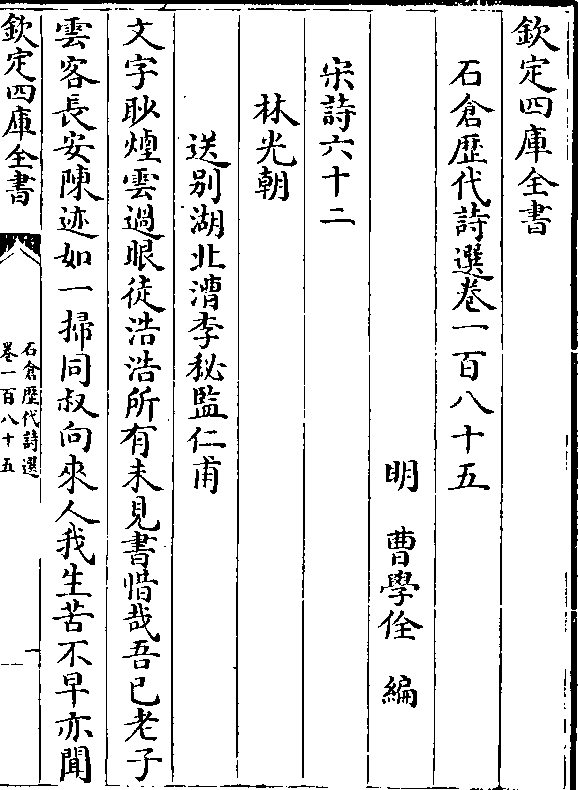 欽定四庫全書
石倉歴代詩選卷一百八十五
明 曹學佺 編
宋詩六十二
林光朝
送别湖北漕李秘監仁甫
文字耿煙雲過眼徒浩浩所有未見書惜哉吾已老子
雲客長安陳迹如一掃同叔向來人我生苦不早亦聞
欽定四庫全書
石倉歴代詩選
卷一百八十五
一